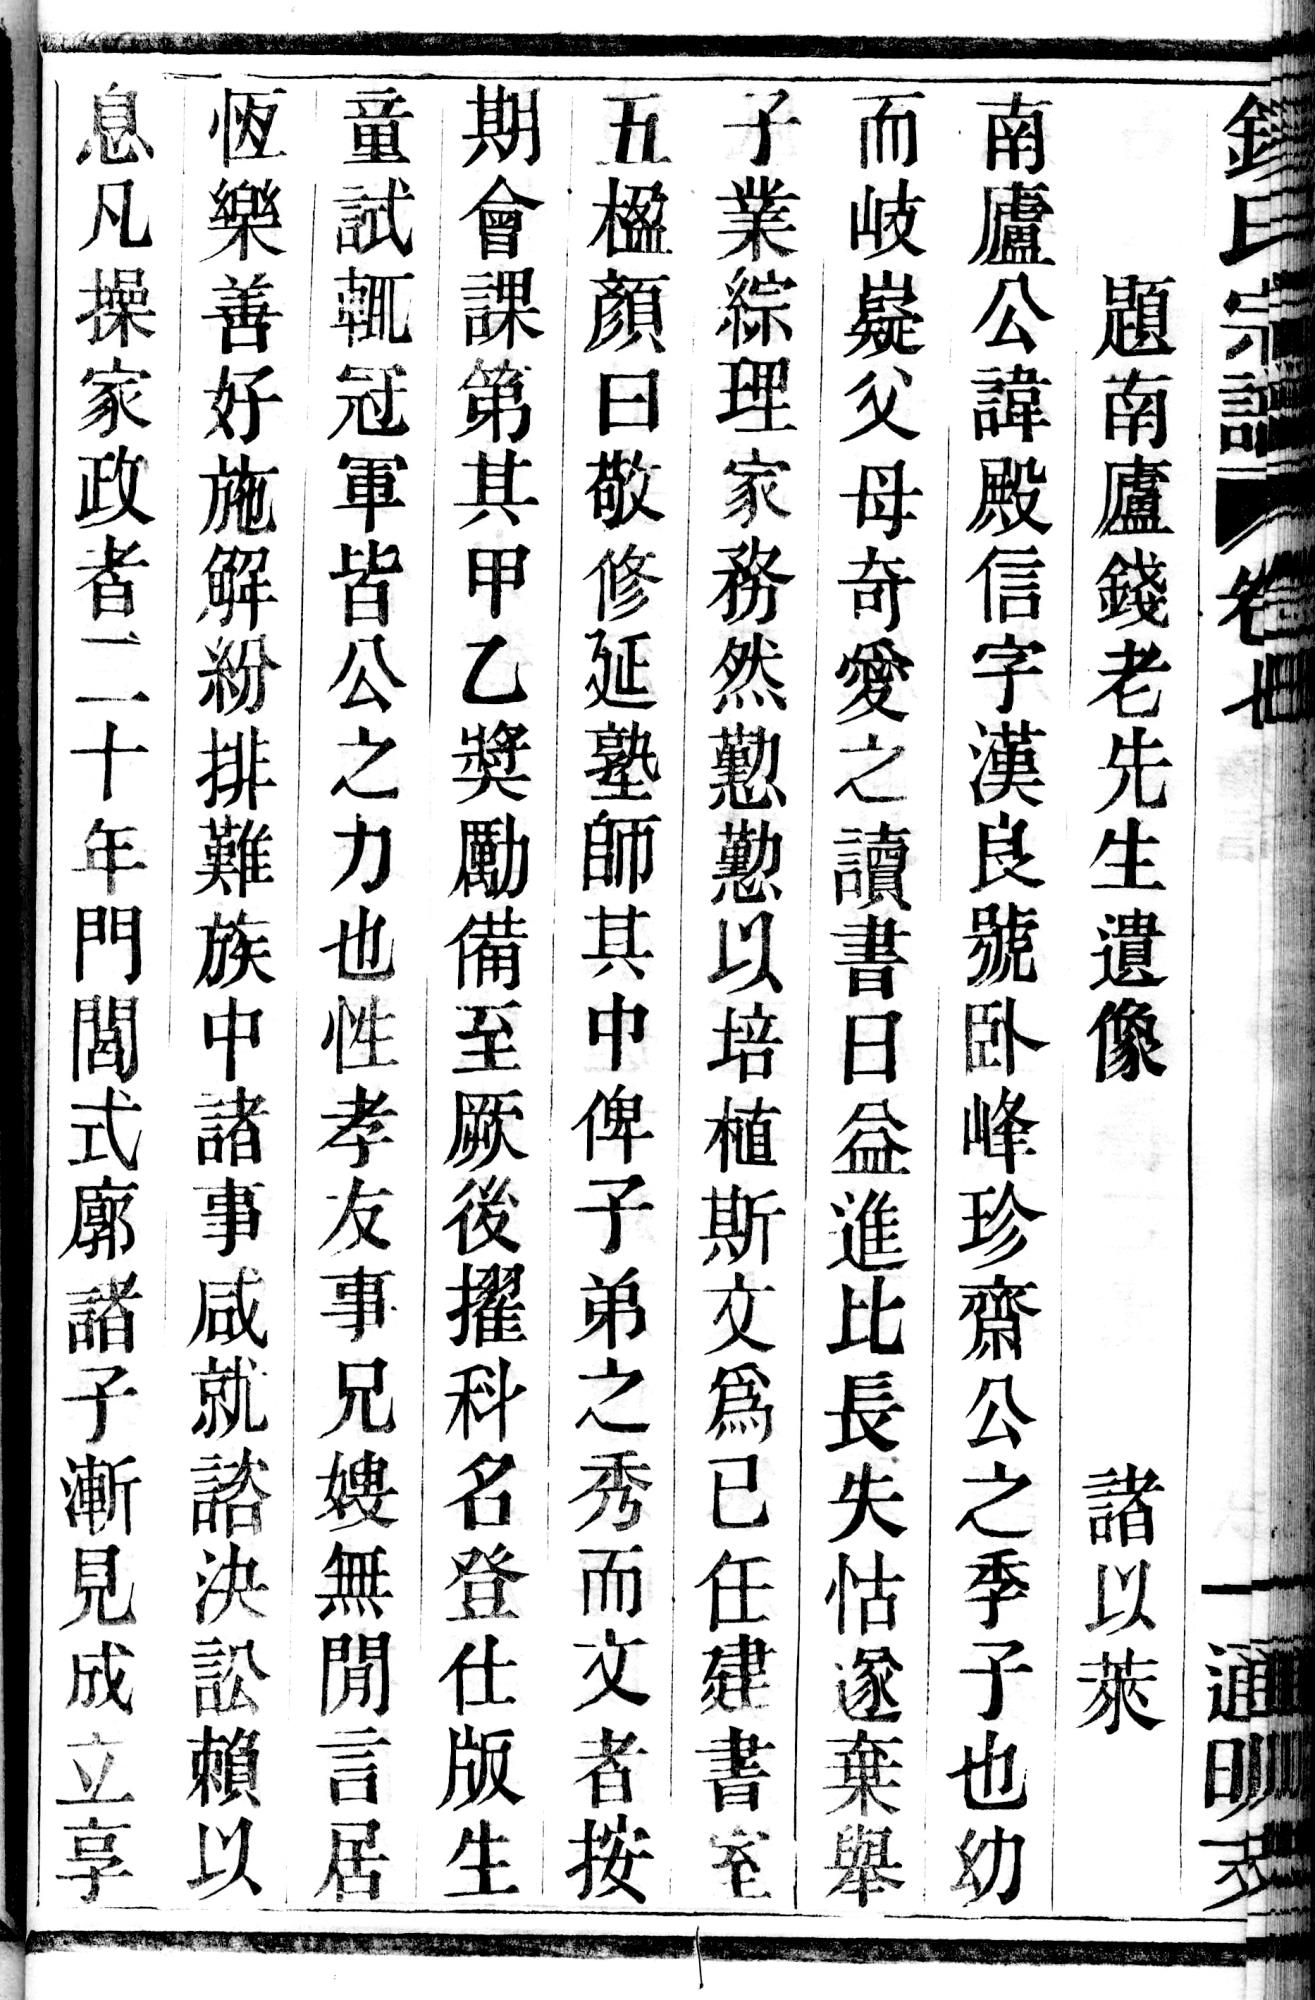 錢氏宗譜 卷
題南廬錢老先生遺像 諸以萊
南廬公諱殿信字漢良號臥峰珍齋公之季子也幼
而岐嶷父母奇愛之讀書日益進比長失怙遂棄舉
子業綜理家務然懃懃以培植斯文爲已任建書室
五楹顏曰敬修延塾師其中俾子弟之秀而文者按
期會課第其甲乙獎勵備至厥後擢科名登仕版生
童試輒冠軍皆公之力也性孝友事兄嫂無閒言居
恆樂善好施解紛排難族中諸事咸就諮決訟賴以
息凡操家政者二十年門閭式廓諸子漸見成立享